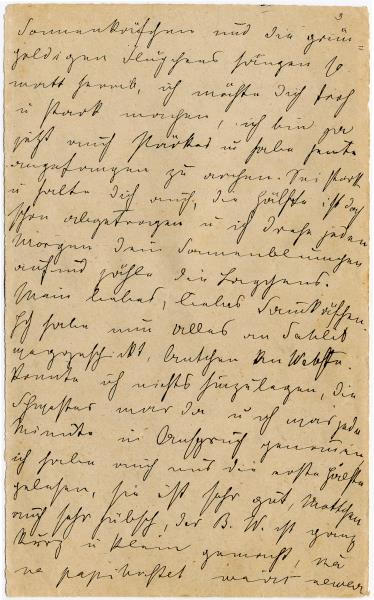 3
Sonnenkäfchen und die grün-
goldigen Flügchens hängen so
matt herab, ich möchte Dich froh
u stark machen, ich bin ja
jetzt auch stärker u habe heute
angefangen zu arbeiten. Sei stark
u halte Dich auch, die Hälfte ist doch
schon abgetragen u ich drehe jeden
Morgen dein Sonnenblumchen
auf und zähle die Tagchens.
Mein liebes, liebes Sonnkäfchen.
Ich habe nun alles an
geschickt,
konnte ich nichts hinzulegen, die
Schwester war da u ich war jede
Minute in Anspruch genommen
ich habe auch nur die erste Hälfte
gelesen, sie ist sehr gut,
auch sehr hübsch, der B. W. ist ganz
kurz u klein gemacht, na
ne